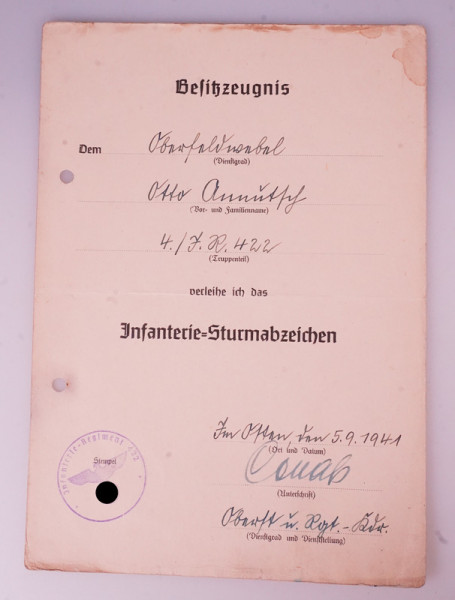 Besitzzeugnis
Dem Oberfeldwebel
(Dienstgrad)
Otto Annutsch
(Vor- und Familienname)
4./J.R. 422
(Truppenteil)
verleihe ich das
Infanterie-Sturmabzeichen
Im Osten, den 5.9.1941
(Ort und Datum)
(Unterschrift)
Oberst u. Rgt.-Kdr.
(Dienstgrad und Dienststellung)
Infanterie-Regiment 422
Stempel